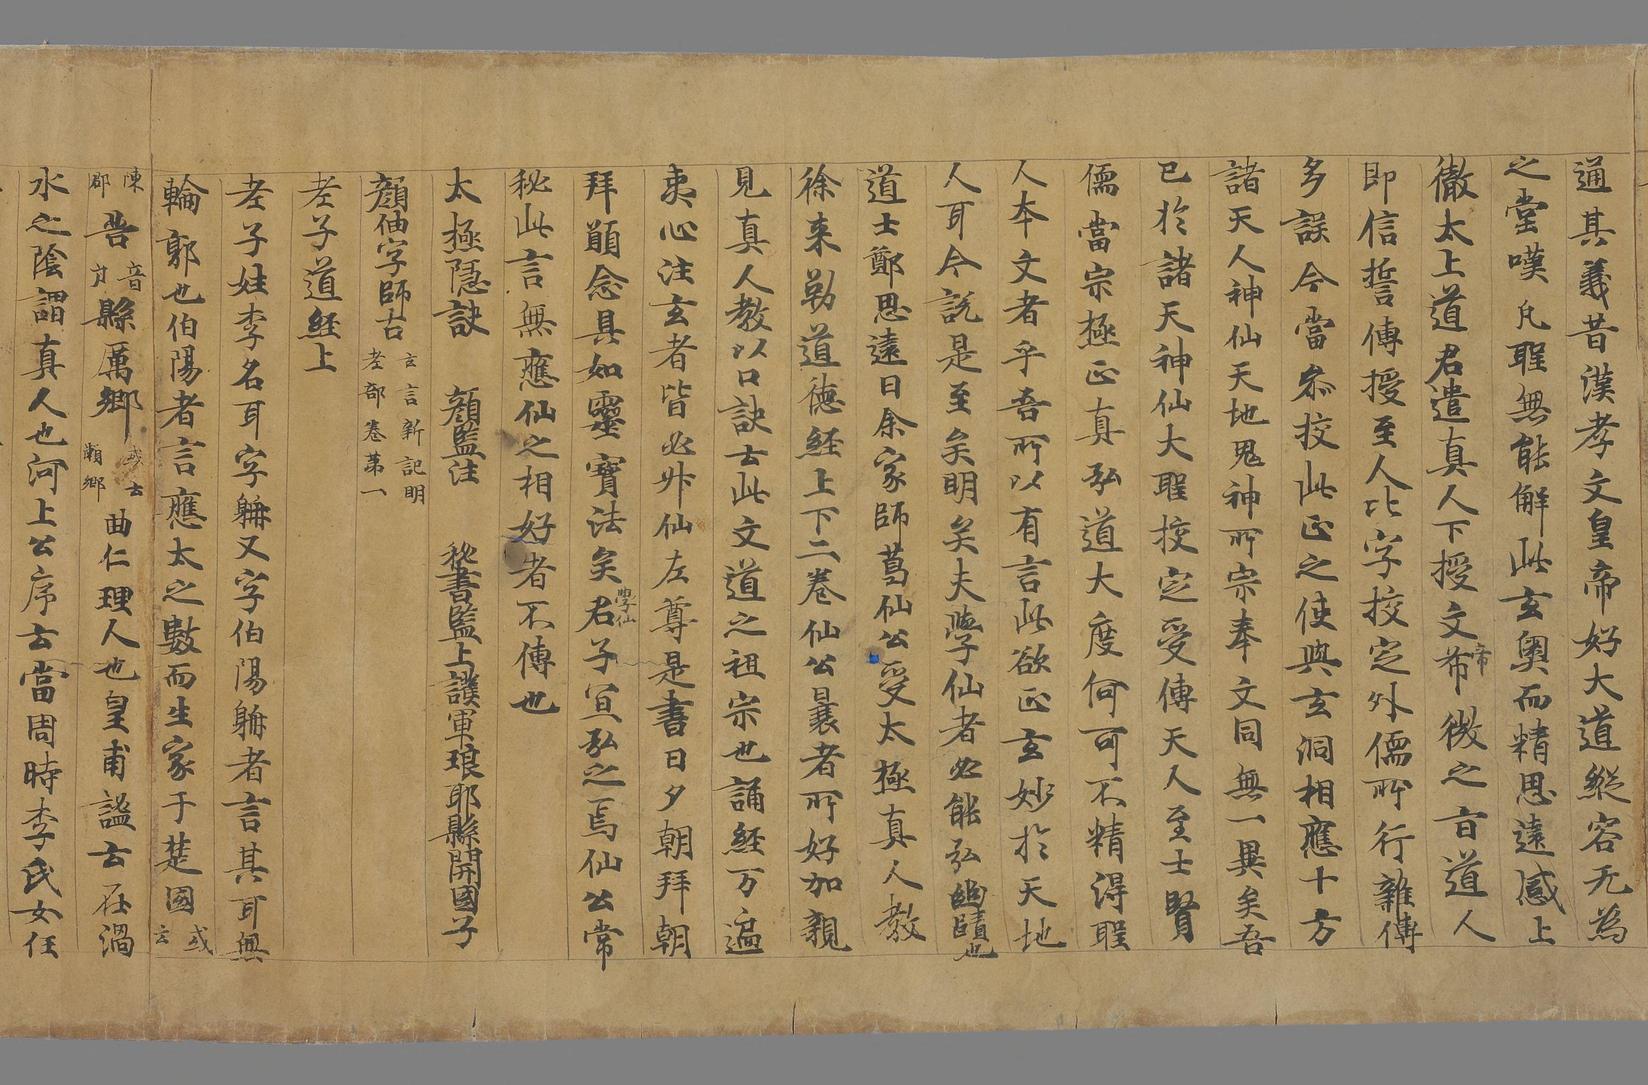 通其義昔漢孝文皇帝好大道縱容无為
之堂嘆凡聖無能解此玄奧而精思遠感上
徹太上道君遣真人下授文帝微之旨道人
即信誓傳授至人比字挍定外儒所行雜傳
多誤今當叅挍此正之使與玄洞相應十方
諸天人神仙天地鬼神所宗奉文同無一異矣吾
已於諸天神仙大聖挍定受傳天人至士賢
儒當宗極正真弘道大度何可不精得聖
人本文者乎吾所以有言此欲正玄妙於天地
人耳今說是至矣明矣夫學仙者必能弘幽賾也
道士鄭思遠曰余家師葛仙公受太極真人教
徐来勒道德經上下二卷仙公曩者所好加親
見真人教以口訣云此文道之祖宗也誦経万遍
夷心注玄者皆必升仙左尊是書日夕朝拜朝
拜願念具如靈寶法矣學仙君子宣弘之焉仙公常
秘此言無應仙之相好者不傳也
太極隱訣 顔監注 秘書監上護軍琅耶縣開國子
顔伷字師古 玄言新記明
老部卷第一
老子道經上
老子姓李名耳字耼又字伯陽耼者言其耳無
輪郭也伯陽者言應太之數而生家于楚國 或
云
陳
郡 告 音
縣厲鄉 或云
瀨鄉 曲仁理人也皇甫謐云在渦
水之陰謂真人也河上公序云當周時李氏女任